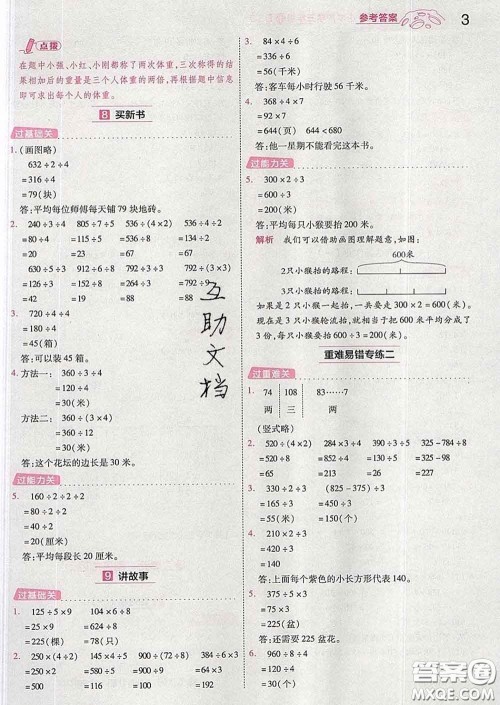 参考答案
3
点拨
在题中小强、小红、小刚都称了两次体重,三次称得的结
果相加后的重量是三个人体重的两倍,再根据题中信息
即可求出每个人的体重。
8 买新书
过基础关
1. (画图略)
632÷2÷4
=316÷4
=79(块)
答:平均每位师傅每天铺 79 块地砖。
2. 240÷3÷4 805÷7÷5 536÷(4×2) 912÷6÷8
=80÷4 =115÷5 =536÷8 =152÷8
=20 =23 =67 =19
630÷5÷3 912÷6÷8 364÷7÷4 792÷(3×3)
=126÷3 =152÷8 =52÷4 =792÷9
=42 =19 =13 =88
3. 720÷4÷4
=180÷4
=45(箱)
答:可以装 45 箱。
4. 方法一: 360÷3÷4
=120÷4
=30(米)
方法二: 360÷(3×4)
=360÷12
=30(米)
答:这个花坛的边长是 30 米。
过能力关
5. 160÷2÷2÷2
=80÷2÷2
=40÷2
=20(厘米)
答:平均每段长 20 厘米。
9 讲故事
过基础关
1. 125÷5×9 104×6÷8
=25×9 =624÷8
=225(棵) =78(只)
2. 250×(4÷2) 145×4÷5 900÷5×2 246÷6×3
=250×2 =580÷5 =180×2 =41×3
=500 =116 =360 =123
3. 84×4÷6
=336÷6
=56(千米)
答:客车每小时行驶 56 千米。
4. 368÷4×7
=92×7
=644(页) 644<680
答:他一星期不能看完这本书。
过能力关
5. 300×2÷3
=600÷3
=200(米)
答:平均每只小猴要抬 200 米。
解析 我们可以借助画图理解题意,如图:
600米
2只小猴抬的路程:
3只小猴抬的路程:
如果是 2 只小猴一起抬,一共要走 300×2=600(米)。
现在是 3 只小猴轮流抬,也就是把 600 米平均分成了
3 份,每只小猴要抬 600÷3=200(米)。
重难易错专练二
过重难关
1. 74 108 83……7
两 三 两
(竖式略)
2. 520÷(4×2) 264×2÷8 630÷(5×3) 325-784÷8
=520÷8 =528÷8 =630÷15 =325-98
=65 =66 =42 =227
3. 330÷2÷3 (825-375)÷3
=165÷3 =450÷3
=55(米) =150(个)
4. 210×2÷3
=420÷3
=140
答:上面每个紫色的小长方形代表 140。
5. 375÷5×3
=75×3
=225(盆)
答:还需要 225 盆花。
6. 960÷8÷4
=120÷4
=30
互助文档
答案圈
MXQE.COM